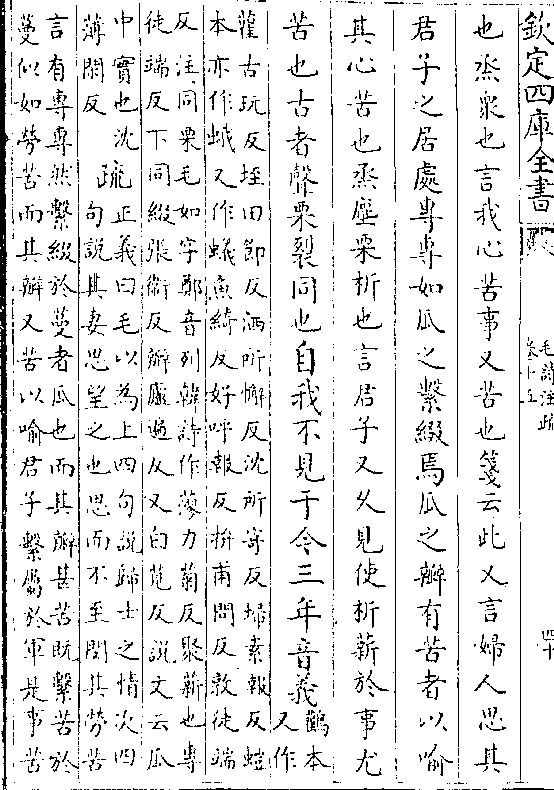 欽定四庫全書
毛詩注疏
卷十五
四十
也烝衆也言我心苦事又苦也箋云此又言婦人思其
君子之居處專專如瓜之繫綴焉瓜之辦有苦者以喻
其心苦也烝塵栗析也言君子又久見使析薪於事尤
苦也古者聲栗裂同也自我不見于今三年音義
鸛本
又作
雚古玩反垤田節反洒所懈反沈所寄反埽素報反螘
本亦作蛾又作蟻魚綺反好呼報反拚甫問反敦徒端
反注同栗毛如字鄭音列韓詩作蓼力菊反聚薪也專
徒端反下同綴張衞反辦盧遍反又白莧反說文云瓜
中實也沈
薄閑反
疏
正義曰毛以為上四句說歸士之情次四
句說其妻思望之也思而不至閔其勞苦
言有專專然繫綴於蔓者瓜也而其辦甚苦既繫苦於
蔓似如勞苦而其辦又苦以喻君子繫屬於軍是事苦